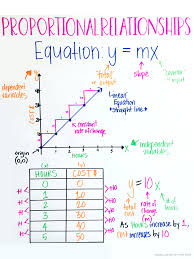 PROPORTIONAL RELATIONSHIPS
Equation: y = mx
dependent variables
total or output
slope
input
COST
Linear Equation
straight line
constant rate of change
origin (0,0)
1 2 3 4 5
HOURS
independent variables
HOURS COST $
(x) (y)
0 0
1 10
2 20
3 30
4 40
5 50
+1 +10
+1 +10
+1 +10
+1 +10
+1 +10
y = 10x
total cost (y)
rate of change (m)
hours (x)
As hours increase by 1,
cost increases by 10